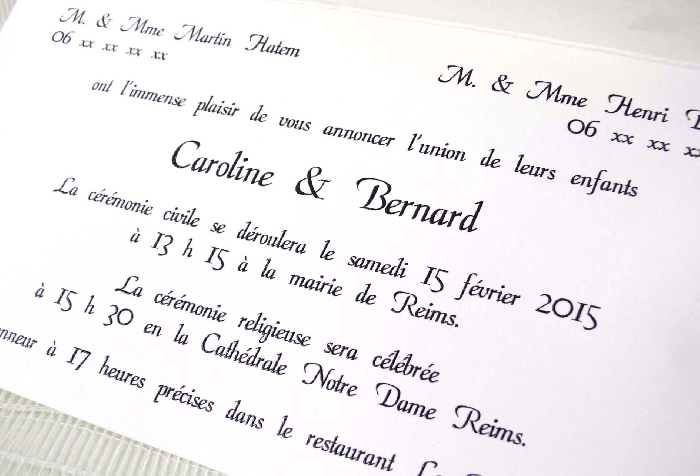 M. & Mme Martin Hatem
06 xx xx xx xx
M. & Mme Henri
06 xx xx xx
ont l'immense plaisir de vous annoncer l'union de leurs enfants
Caroline & Bernard
La cérémonie civile se déroulera le samedi 15 février 2015
à 13 h 15 à la mairie de Reims.
La cérémonie religieuse sera célébrée
à 15 h 30 en la Cathédrale Notre Dame Reims.
nneur à 17 heures précises dans le restaurant